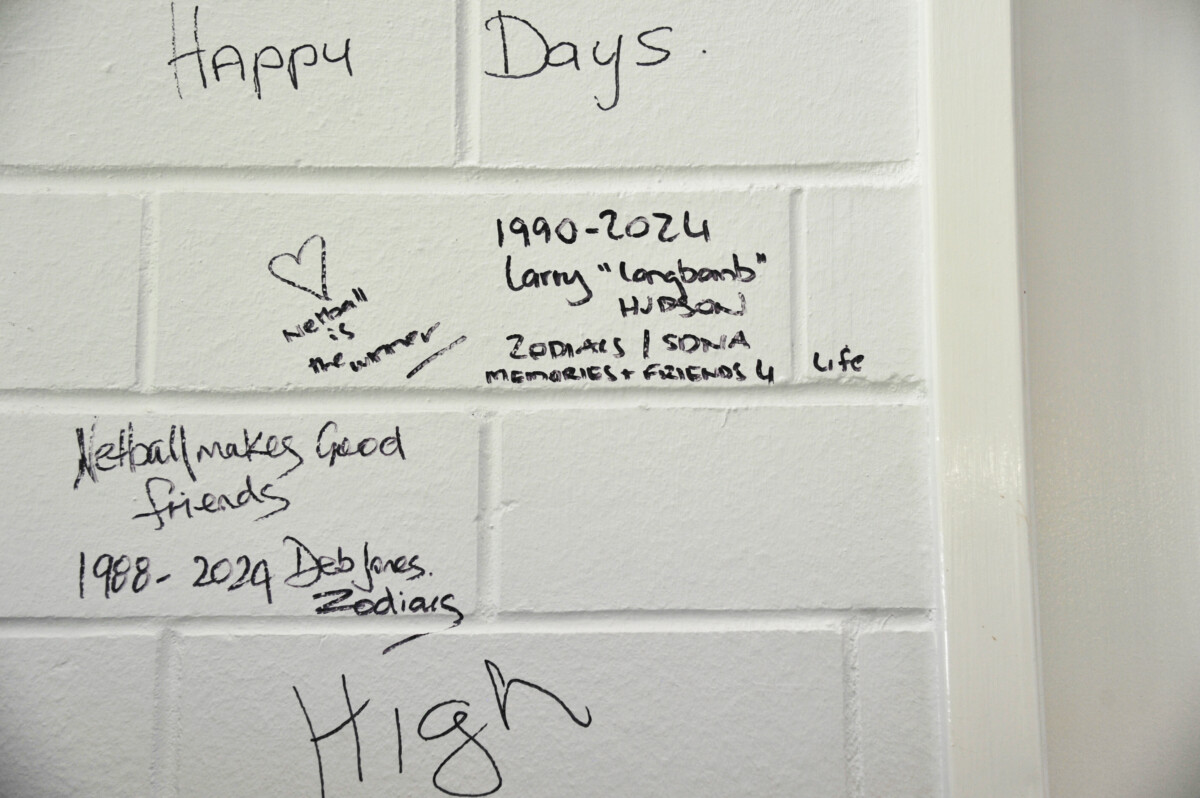 Happy Days.
Netball
is
the winner
1990-2024
Larry "Longbomb"
HUDSON
ZODIACS / SDNA
MEMORIES + FRIENDS 4 Life
Netball makes Good
friends
1988- 2024 Deb Jones.
Zodiacs
High